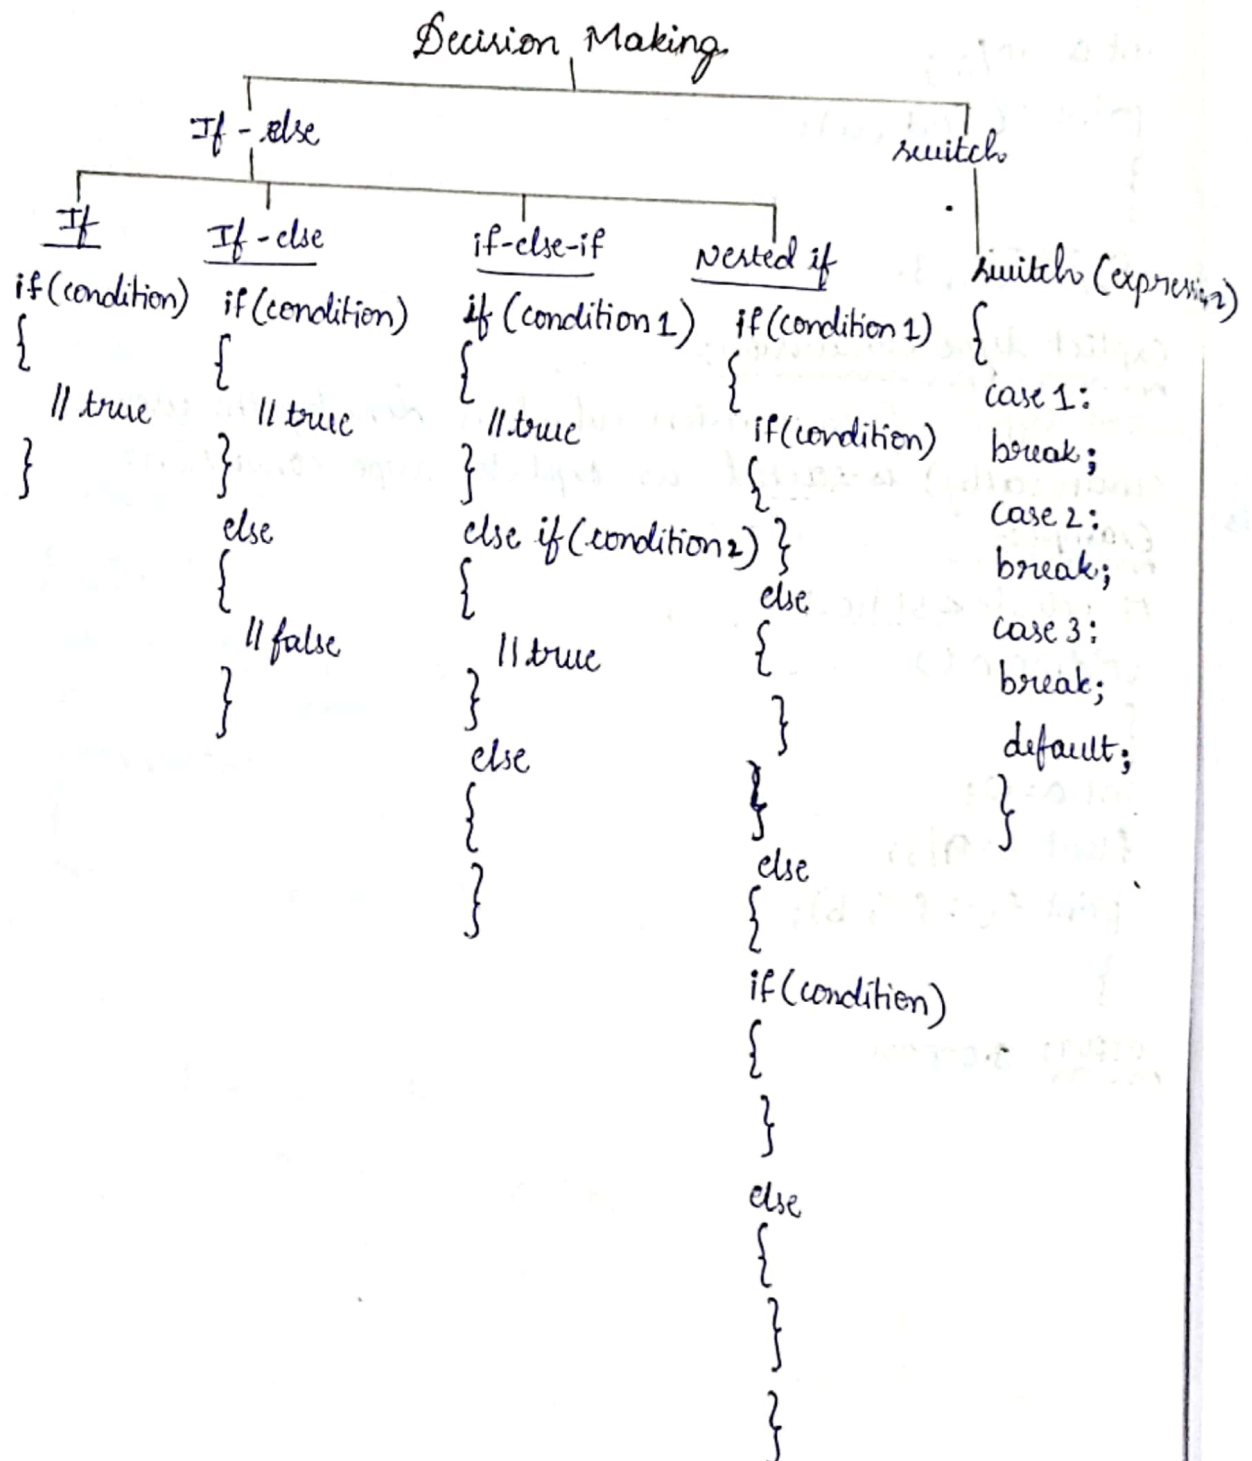 Decision Making.
If - else
switch
If
if(condition)
{
// true
}
If - else
if(condition)
{
// true
}
else
{
// false
}
if-else-if
if (condition 1)
{
// true
}
else if (condition 2)
{
// true
}
else
{
}
Nested if
if(condition 1)
{
if(condition)
{
}
else
{
}
}
else
{
if(condition)
{
}
else
{
}
}
switch (expression)
{
case 1:
break;
case 2:
break;
case 3:
break;
default;
}